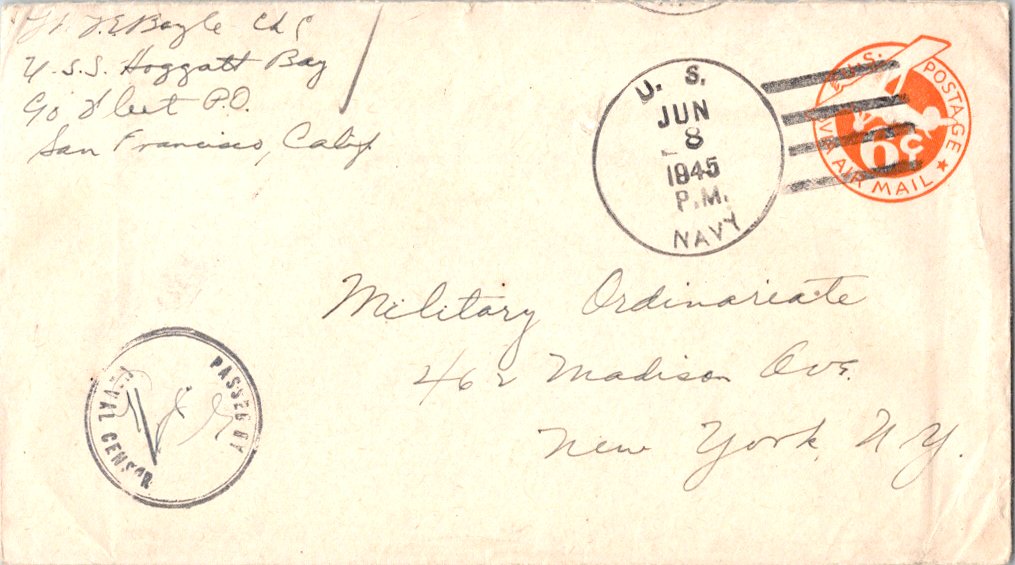 Lt. J.E Boyle Ch C
U.S.S. Hoggatt Bay
c/o Fleet P.O.
San Francisco, Calif
U. S.
JUN
8
1945
P.M.
NAVY
U.S. POSTAGE
6¢
VIA AIR MAIL
Military Ordinariate
462 Madison Ave.
New York, N.Y.
PASSED BY
NAVAL CENSOR